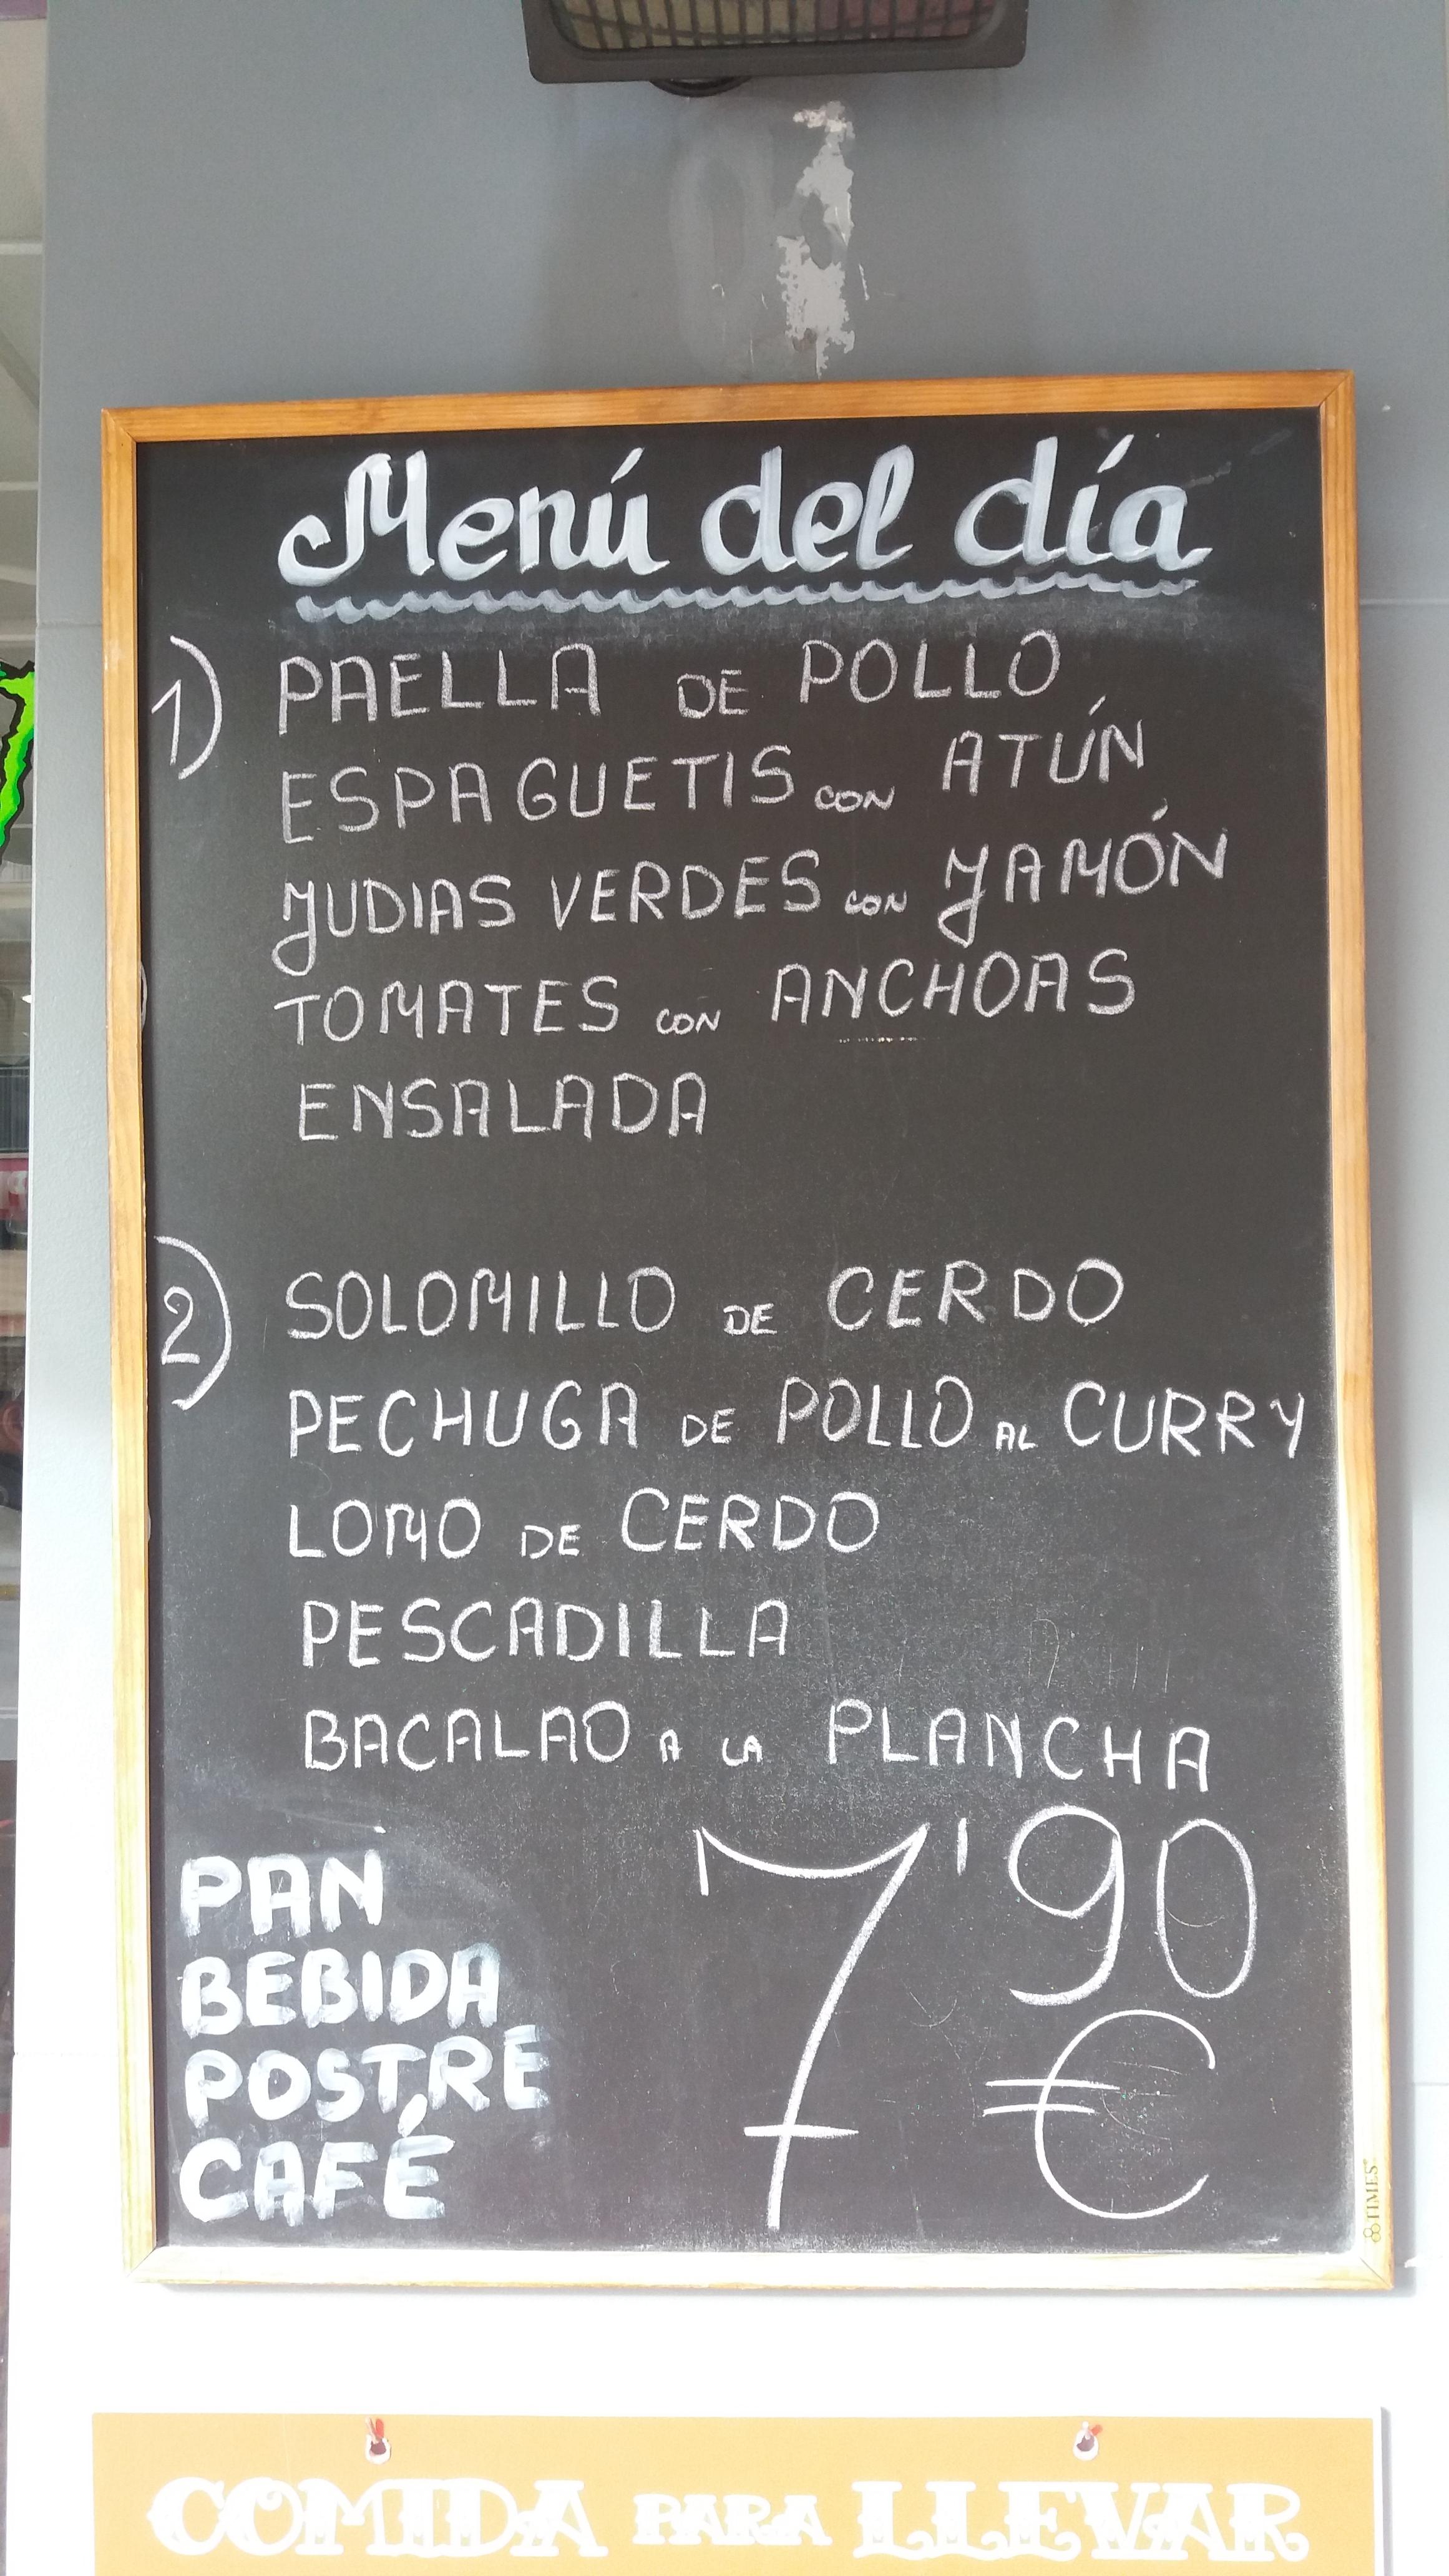 Menú del día
1) PAELLA DE POLLO
ESPAGUETIS CON ATÚN
JUDIAS VERDES CON JAMÓN
TOMATES CON ANCHOAS
ENSALADA
2) SOLOMILLO DE CERDO
PECHUGA DE POLLO AL CURRY
LOMO DE CERDO
PESCADILLA
BACALAO A LA PLANCHA
PAN
BEBIDA
POSTRE
CAFÉ
7'90
€
TIMES
COMIDA PARA LLEVAR